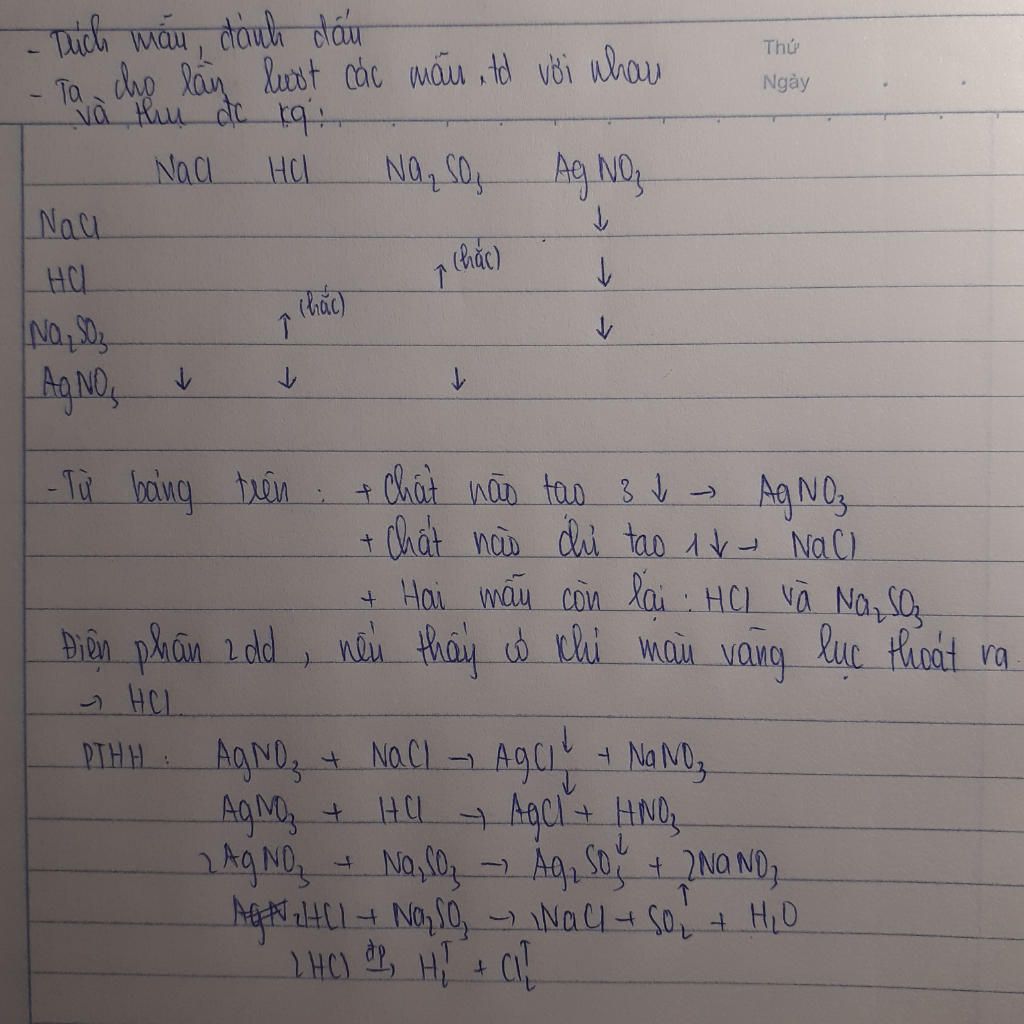 - Trích mẫu, đánh dấu
Thứ
- Ta cho lần lượt các mẫu td với nhau
Ngày
và thu đc kq:
NaCl HCl Na₂SO₃ AgNO₃
NaCl ↓
HCl ↑ (hắc) ↓
Na₂SO₃ ↑ (hắc) ↓
AgNO₃ ↓ ↓ ↓
- Từ bảng trên : + Chất nào tạo 3 ↓ → AgNO₃
+ Chất nào chỉ tạo 1↓ → NaCl
+ Hai mẫu còn lại : HCl và Na₂SO₃
Điện phân 2dd , nếu thấy có khí màu vàng lục thoát ra
→ HCl
PTHH : AgNO₃ + NaCl → AgCl↓ + NaNO₃
AgNO₃ + HCl → AgCl↓ + HNO₃
2AgNO₃ + Na₂SO₃ → Ag₂SO₃↓ + 2NaNO₃
2HCl + Na₂SO₃ → 2NaCl + SO₂↑ + H₂O
2HCl đp→ H₂↑ + Cl₂↑